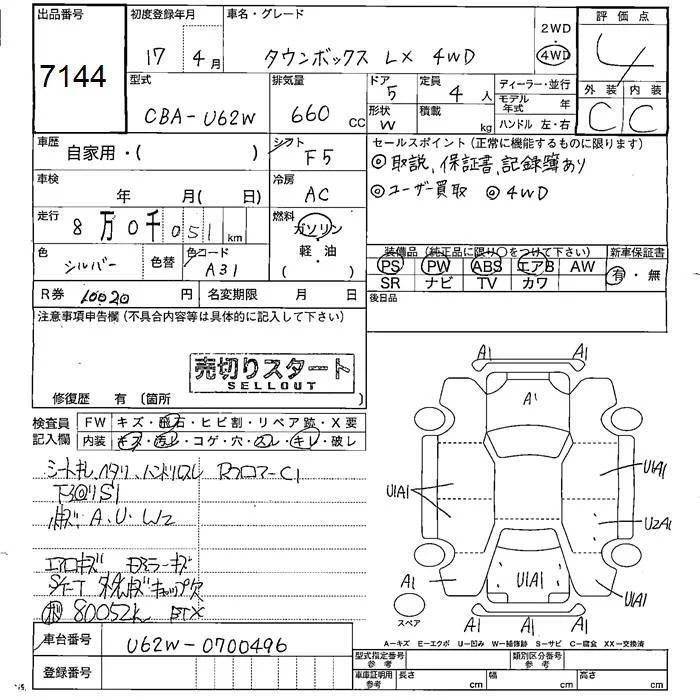 出品番号 初度登録年月 車名・グレード 2WD 評価点
7144 17 4月 タウンボックス LX 4WD 4WD 4
型式 排気量 ドア 5 定員 4人 ディーラー・並行 外装 内装
CBA-U62W 660 CC 形状 W 積載 kg モデル年式 年 C C
ハンドル 左・右
車歴 自家用・( ) シフト F5 セールスポイント(正常に機能するものに限ります)
◎取説、保証書、記録簿あり
車検 年 月( 日) 冷房 AC ◎ユーザー買取 ◎4WD
走行 8万0千051km 燃料 ガソリン
軽・油
( )
色 シルバー 色替 色コード A31 装備品(純正品に限り○をつけて下さい) 新車保証書
PS PW ABS エアB AW 有・無
SR ナビ TV カワ
R券 10020円 名変期限 月 日 後日品
注意事項申告欄(不具合内容等は具体的に記入して下さい)
売切りスタート
SELLOUT
修復歴 有(箇所 )
検査員 FW キズ・飛石・ヒビ割・リペア跡・X要
記入欄 内装 キズ・汚レ・コゲ・穴・スレ・キレ・破レ
シートキレ、ヘタリ、ハンドルスレ RフロアーC1
下廻りS1
A.U.W2
エアロキズ
80052k
A1 A1
A1
U1A1 U1A1
U2A1
A1 U1A1 U1A1
スペア A1 A1
A-キズ E-エクボ U-凹み W-補修跡 S-サビ C-腐食 XX-交換済
車台番号 U62W-0700496
型式指定番号 参考 類別区分番号 参考
登録番号 車庫証明用 参考 長さ cm 幅 cm 高さ cm